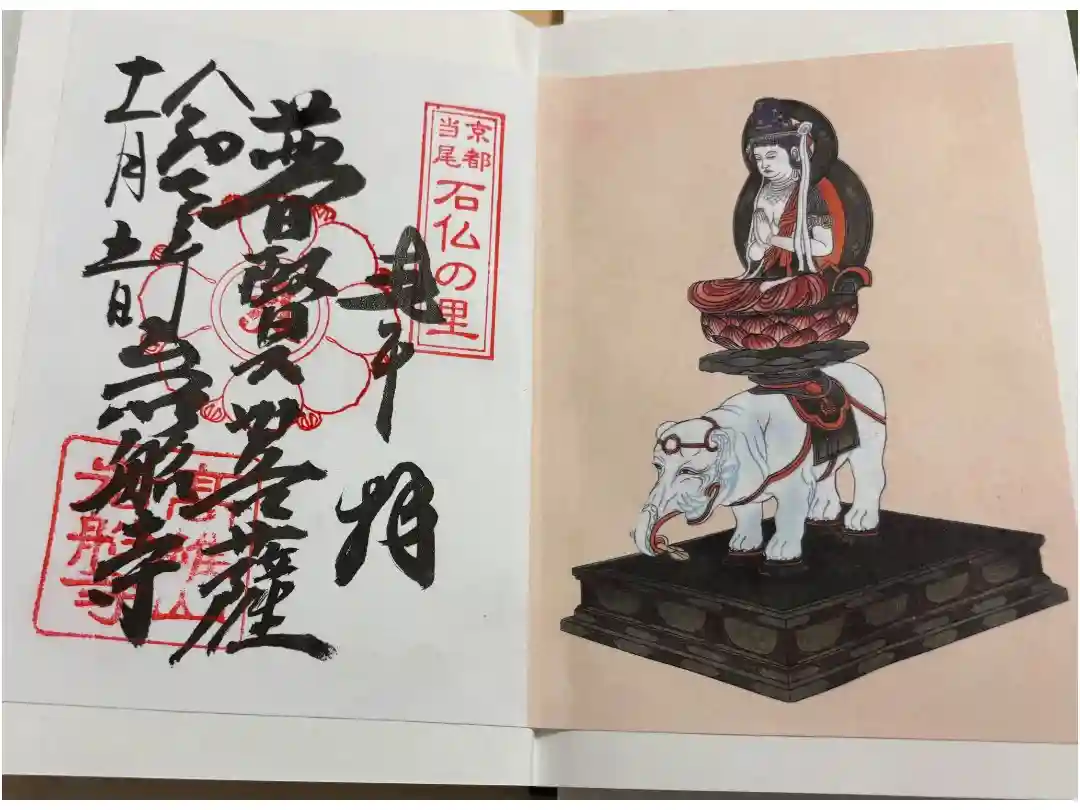 京都
当尾
石仏の里
奉拝
普賢菩薩
令和三年
十一月十一日
岩船寺
高雄山
岩船寺